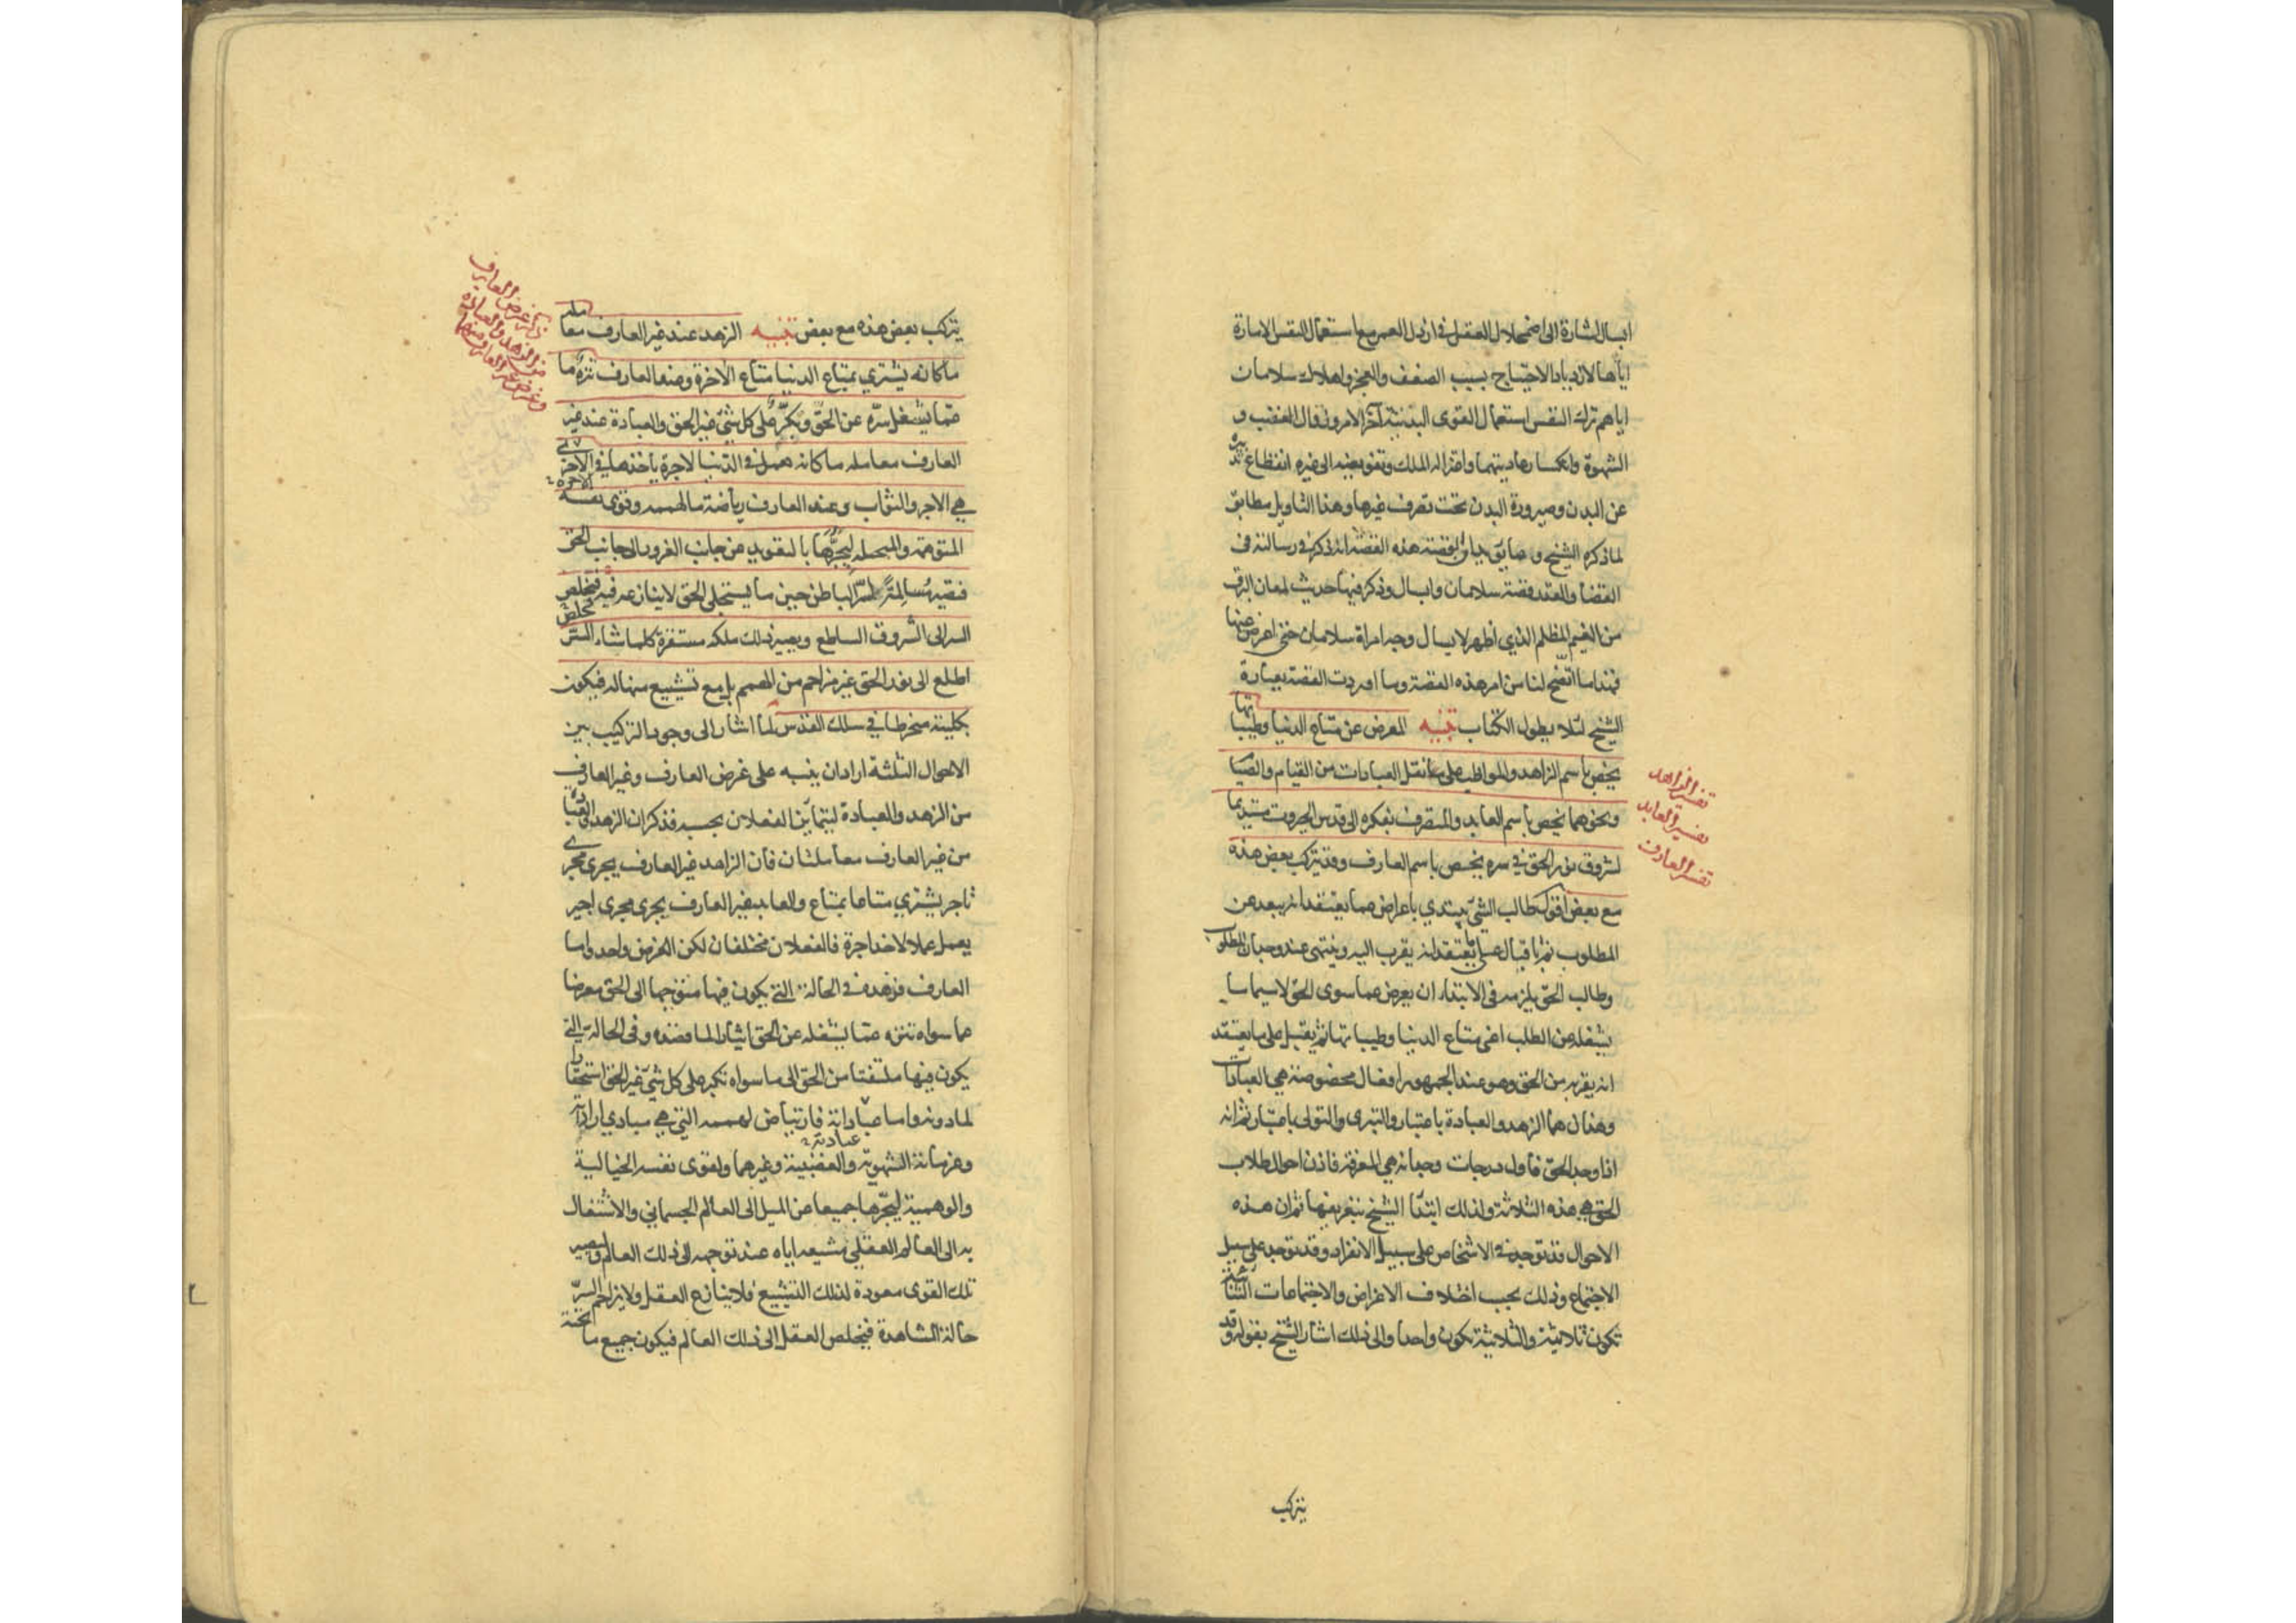 ابسال اشارة الى اضمحلال العقل فى ارذل العمر مع استعمال النفس الامارة
اياهما لازدياد الاحتياج بسبب الضعف والعجز واهلاك سلامان
اياهم ترك النفس استعمال القوى البدنية آخر الامر وزوال الغضب و
الشهوة وانكسار عاديتهما واعتزاله الملك وتفويضه الى غيره انقطاع تدبيره
عن البدن وصيرورة البدن تحت تصرف غيرها وهذا التاويل مطابق
لما ذكره الشيخ و مما يؤيد انه القصة هذه القصة انه ذكر فى رسالته فى
القضا والقدر قصة سلامان وابسال وذكر فيها حديث لمعان البرق
من الغيم المظلم الذي اظهر لابسال وجه امراة سلامان حتى اعرض عنها
فهذا ما اتضح لنا من امر هذه القصة وما اوردت القصة بعبارة
الشيخ لئلا يطول الكتاب تنبيه المعرض عن متاع الدنيا وطيباتها
يخص باسم الزاهد والمواظب على نقل العبادات من القيام والصيا
ونحوهما يخص باسم العابد والمتصرف بفكره الى قدس الجبروت مستديما
لشروق نور الحق في سره يخص باسم العارف وقد يتركب بعض هذه
مع بعض اقول طالب الشئ يبتدي باعراض عما يعتقد انه يبعد عن
المطلوب ثم باقبال على ما يعتقد انه يقرب اليه وينتهى عند وجدان المطلوب
وطالب الحق يلزمه فى الابتداء ان يعرض عما سوى الحق لاسيما ما
يشغله عن الطلب اعنى متاع الدنيا وطيباتها ثم يقبل على ما يعتقد
انه يقربه من الحق وهو عند الجمهور افعال مخصوصة هي العبادات
وهذان هما الزهد والعبادة باعتبار والتبرى والتولى باعتبار ثم انه
اذا وجد الحق فاول درجات وجدانه هي المعرفة فاذن احوال طلاب
الحق هي هذه الثلاثة ولذلك ابتدأ الشيخ بتعريفها ثم ان هذه
الاحوال قد توجد فى الاشخاص على سبيل الانفراد وقد توجد على سبيل
الاجتماع وذلك بحسب اختلاف الاعراض والاجتماعات الثنائية
تكون ثلاثية والثلاثية تكون واحدا والى ذلك اشار الشيخ بقوله وقد
يتركب
تفسير الزاهد
تفسير العابد
تفسير العارف
يتركب بعض هذه مع بعض تنبيه الزهد عند غير العارف معاملة
ما كانه يشتري بمتاع الدنيا متاع الآخرة وعند العارف تنزه ما
عما يشغل سره عن الحق وتكبر على كل شئ غير الحق والعبادة عند غير
العارف معاملة ما كانه يعمل فى الدنيا لاجرة ياخذها في الاخرة
هي الاجر والثواب وعند العارف رياضة ما لهممه وقوى نفسه
المتوهمة والمتخيلة ليجرها بالتعويد من جانب الغرور الى جانب الحق
فتصير مسالمة للسر الباطن حين ما يستجلى الحق لا ينازعه فيخلص
السر الى الشروق الساطع ويصير ذلك ملكة مستقرة كلما شاء السر
اطلع الى نور الحق غير مزاحم من الهمم بل مع تشييع منها له فيكون
بكليته منخرطا في سلك القدس لما اشار الى وجود التركيب بين
الاحوال الثلثة اراد ان ينبه على غرض العارف وغير العارف
من الزهد والعبادة ليتمايز الفعلان بحسبه فذكر ان الزهد والعبادة
من غير العارف معاملتان فان الزاهد غير العارف يجرى مجرى
تاجر يشتري متاعا بمتاع والعابد غير العارف يجرى مجرى اجير
يعمل عملا لاخذ اجرة فالفعلان مختلفان لكن الغرض واحد واما
العارف فزهده فى الحالة التي يكون فيها متوجها الى الحق معرضا
عما سواه تنزه عما يشغله عن الحق ايثارا لما قصده وفى الحالة التي
يكون فيها ملتفتا من الحق الى ما سواه تكبر على كل شئ غير الحق استحقارا
لما دونه واما عباداته فارتياض لهممه التي هي مبادي اراداته
عبادته
وعزماته الشهوية والغضبية وغيرهما ولقوى نفسه الخيالية
والوهمية ليجرها جميعا من الميل الى العالم الجسماني والاشتغال
به الى العالم العقلي مشيعة اياه عند توجهه الى ذلك العالم وتصير
تلك القوى معودة لذلك التشييع فلا ينازع العقل ولا يزاحم السر
حالة المشاهدة فيخلص العقل الى ذلك العالم فيكون جميع ما تحته
ذكر غرض العارف
من الزهد والعبادة
وغرض غير العارف منهما